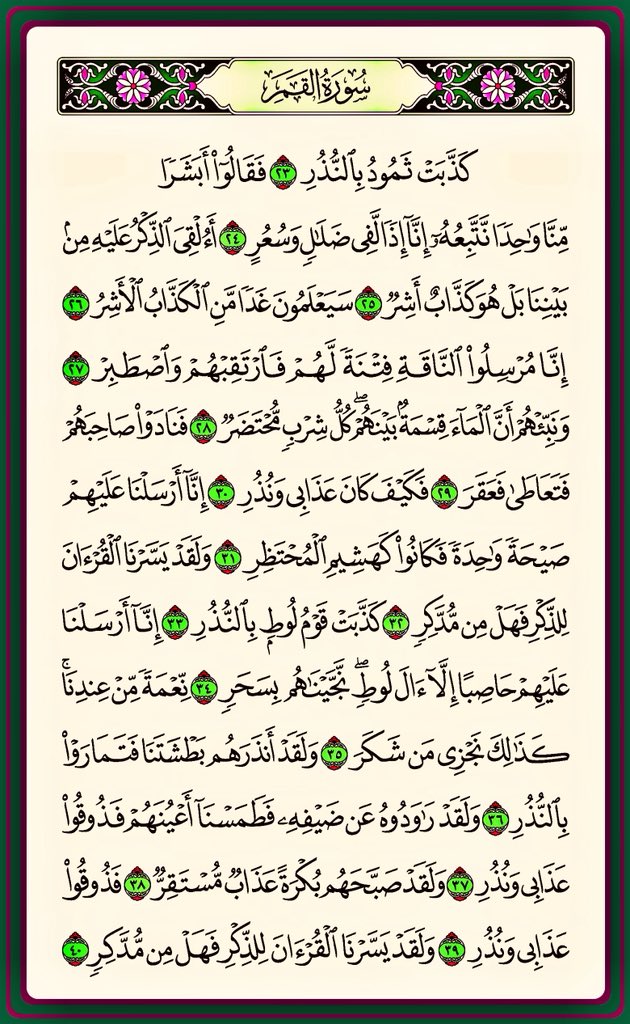 سُورَةُ القَمَرِ
كَذَّبَتْ ثَمُودُ بِالنُّذُرِ ٢٣ فَقَالُوٓا۟ أَبَشَرًا
مِّنَّا وَٰحِدًا نَّتَّبِعُهُۥٓ إِنَّآ إِذًا لَّفِى ضَلَٰلٍ وَسُعُرٍ ٢٤ أَءُلْقِىَ ٱلذِّكْرُ عَلَيْهِ مِنۢ
بَيْنِنَا بَلْ هُوَ كَذَّابٌ أَشِرٌ ٢٥ سَيَعْلَمُونَ غَدًا مَّنِ ٱلْكَذَّابُ ٱلْأَشِرُ ٢٦
إِنَّا مُرْسِلُوا۟ ٱلنَّاقَةِ فِتْنَةً لَّهُمْ فَٱرْتَقِبْهُمْ وَٱصْطَبِرْ ٢٧
وَنَبِّئْهُمْ أَنَّ ٱلْمَآءَ قِسْمَةٌۢ بَيْنَهُمْ ۖ كُلُّ شِرْبٍ مُّحْتَضَرٌ ٢٨ فَنَادَوْا۟ صَاحِبَهُمْ
فَتَعَاطَىٰ فَعَقَرَ ٢٩ فَكَيْفَ كَانَ عَذَابِى وَنُذُرِ ٣٠ إِنَّآ أَرْسَلْنَا عَلَيْهِمْ
صَيْحَةً وَٰحِدَةً فَكَانُوا۟ كَهَشِيمِ ٱلْمُحْتَظِرِ ٣١ وَلَقَدْ يَسَّرْنَا ٱلْقُرْءَانَ
لِلذِّكْرِ فَهَلْ مِن مُّدَّكِرٍ ٣٢ كَذَّبَتْ قَوْمُ لُوطٍۭ بِٱلنُّذُرِ ٣٣ إِنَّآ أَرْسَلْنَا
عَلَيْهِمْ حَاصِبًا إِلَّآ ءَالَ لُوطٍ ۖ نَّجَّيْنَٰهُم بِسَحَرٍ ٣٤ نِّعْمَةً مِّنْ عِندِنَا ۚ
كَذَٰلِكَ نَجْزِى مَن شَكَرَ ٣٥ وَلَقَدْ أَنذَرَهُم بَطْشَتَنَا فَتَمَارَوْا۟
بِٱلنُّذُرِ ٣٦ وَلَقَدْ رَٰوَدُوهُ عَن ضَيْفِهِۦ فَطَمَسْنَآ أَعْيُنَهُمْ فَذُوقُوا۟
عَذَابِى وَنُذُرِ ٣٧ وَلَقَدْ صَبَّحَهُم بُكْرَةً عَذَابٌ مُّسْتَقِرٌّ ٣٨ فَذُوقُوا۟
عَذَابِى وَنُذُرِ ٣٩ وَلَقَدْ يَسَّرْنَا ٱلْقُرْءَانَ لِلذِّكْرِ فَهَلْ مِن مُّدَّكِرٍ ٤٠